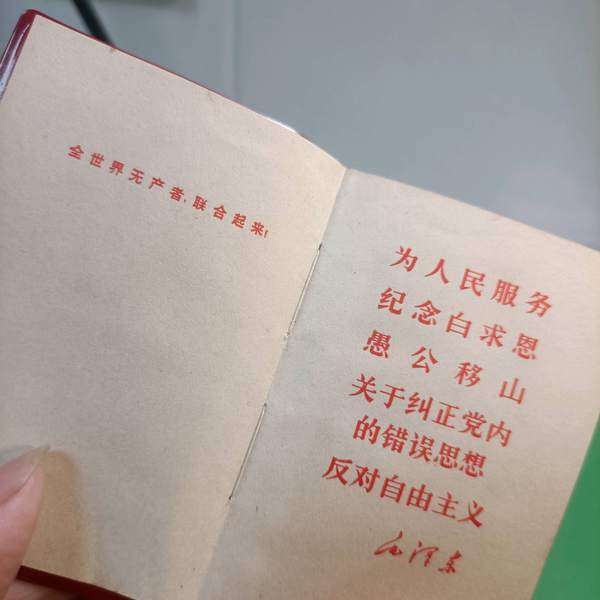 全世界无产者,联合起来!
为人民服务
纪念白求恩
愚公移山
关于纠正党内
的错误思想
反对自由主义
毛泽东